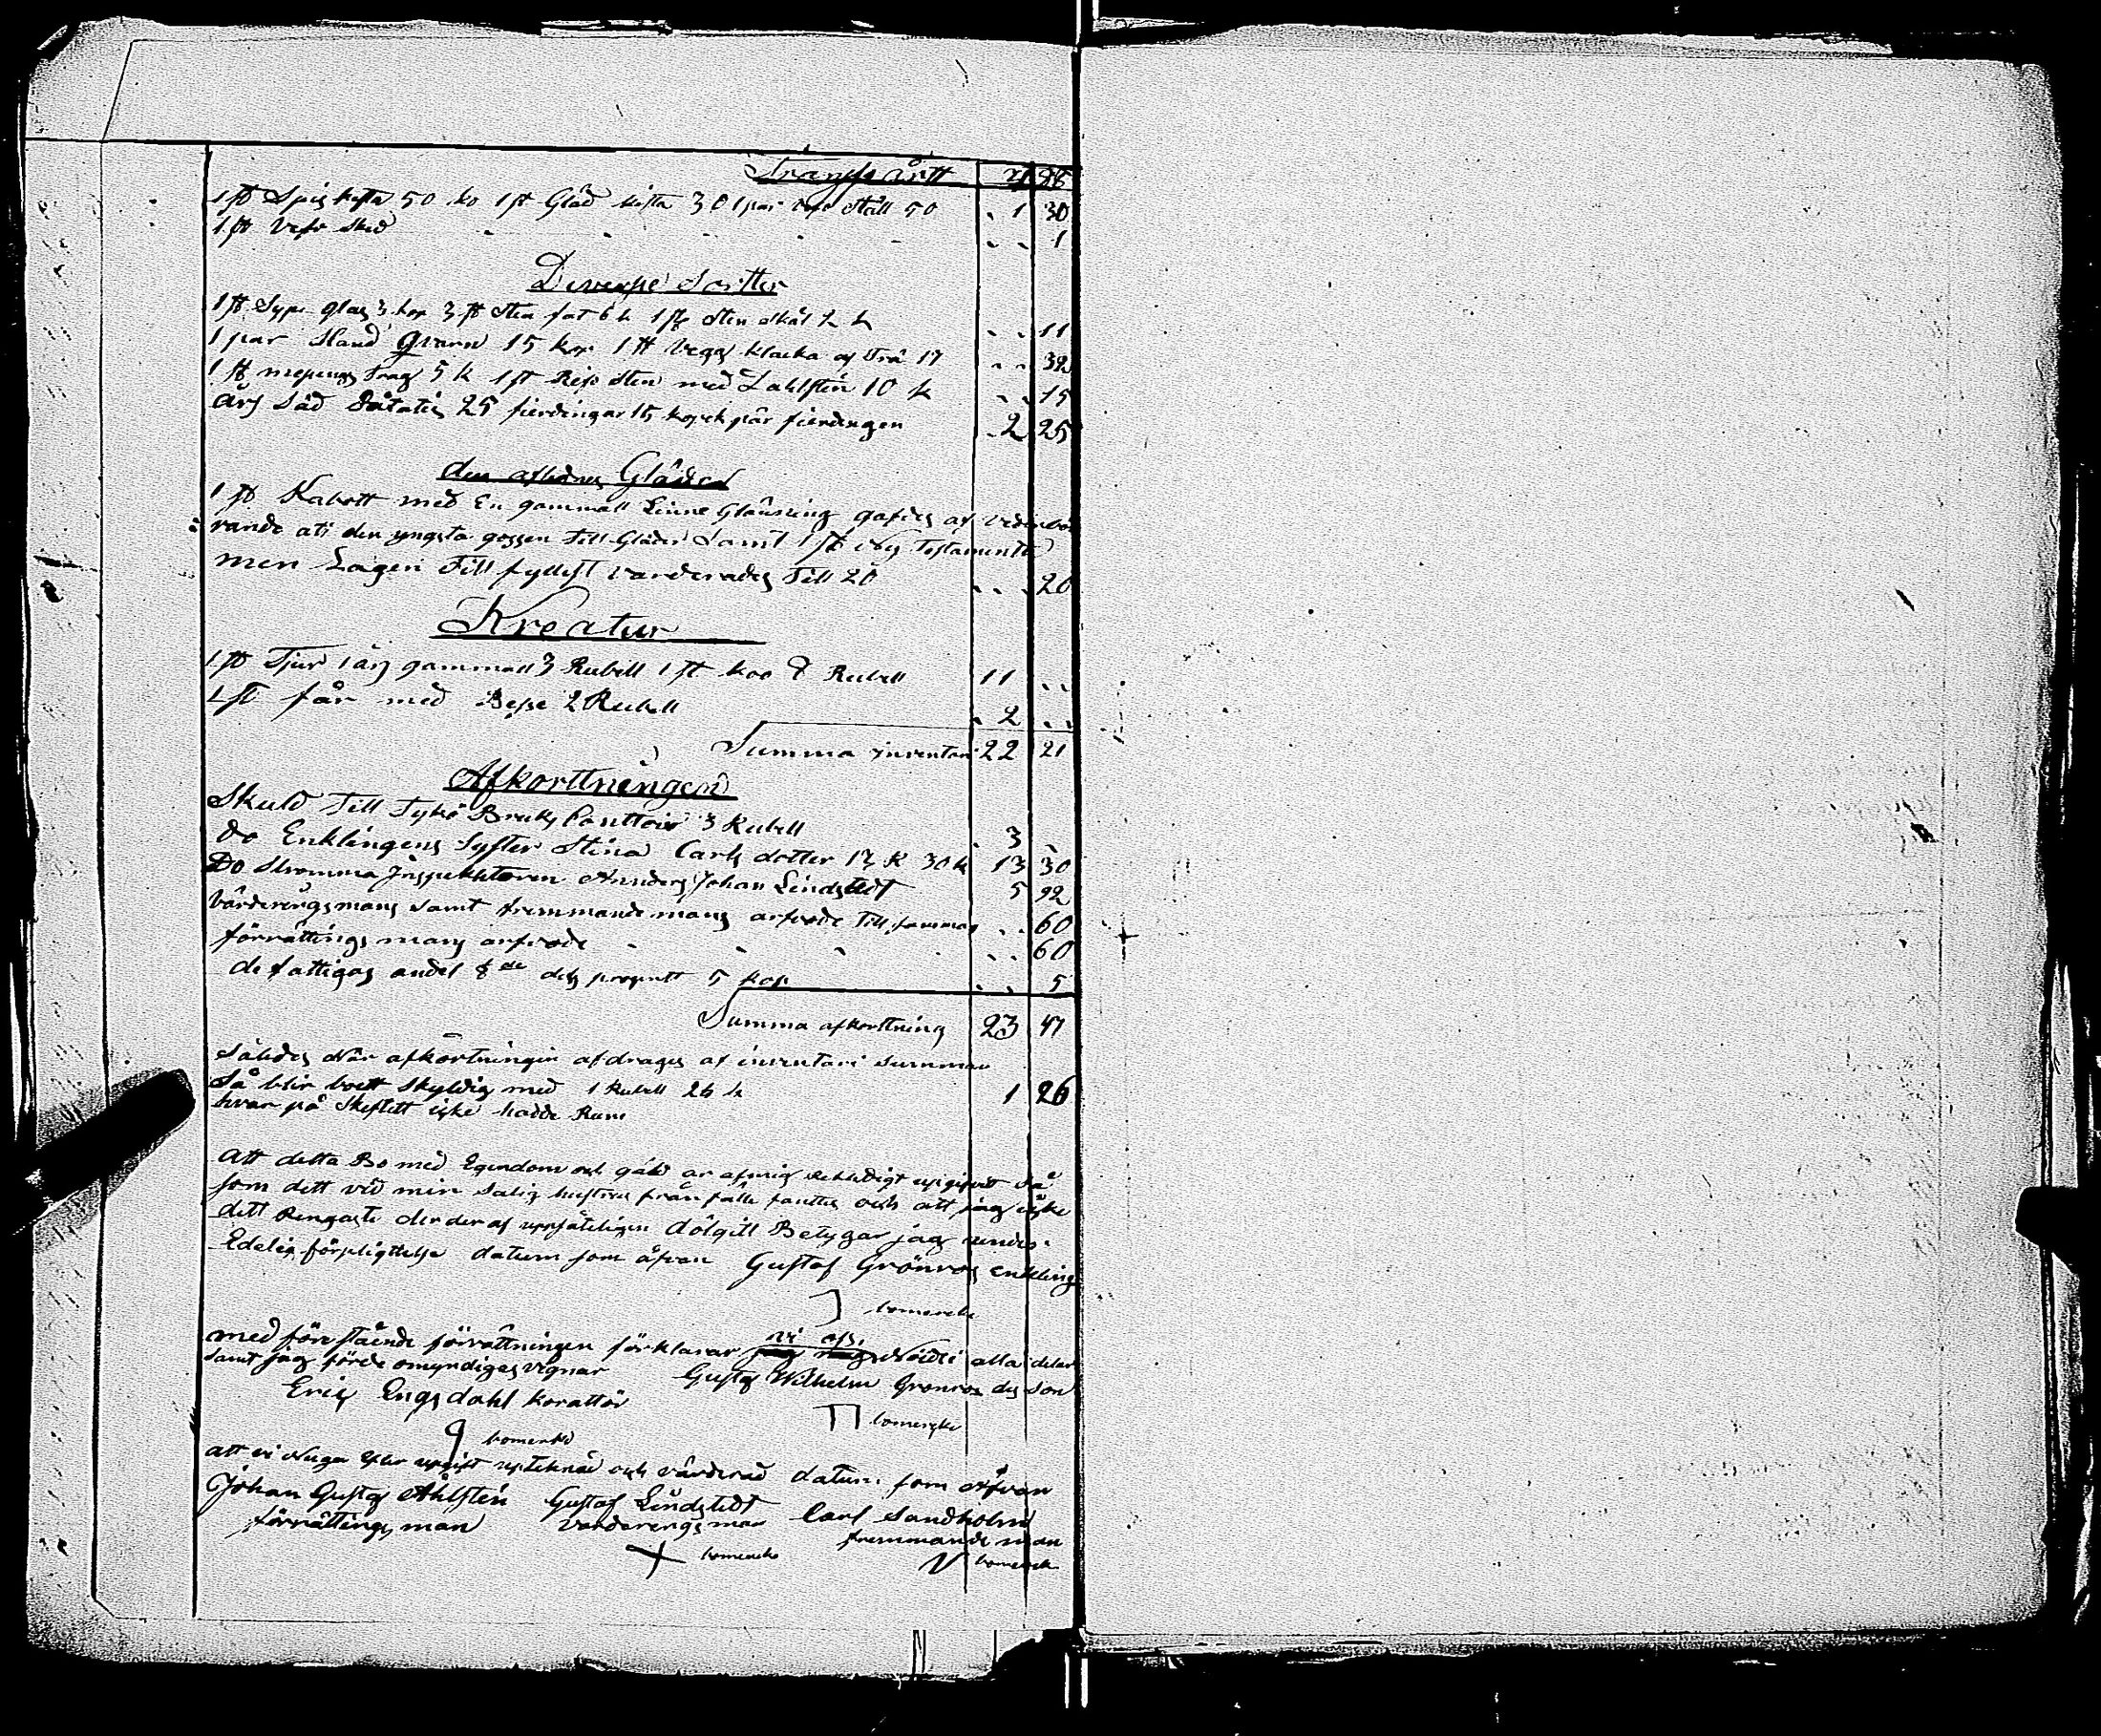 Transpårtt
1 st Spis kista 50 ko 1 st Gläd kista 30 1 par Väfv Ställ 50 . 1 30
1 st Väfv sked . . 1
Diverse Sortter
1 st Syps glas 3 kop 3 st Sten fat 6 k 1 st Sten skål 2 k . . 11
1 par Hand Qvarn 15 kop 1 st Vegg klacka af Trä 17 . . 32
1 st mesings Trag 5 k 1 st Sten med 10 k . . 15
års Säd Påtatis 25 fierdingar 15 kopek pär fierdingen . 2 25
den aflidnes Gläder
1 st Kabott med En gammall Linne Glädning gafves af
rande åt den yngsta gossen Till Gläder Samt 1 st Nys Testamente
men Lagen Till fyllest varderades Till 20 . . . 20
Kreatur
1 st Tjur 1 års gammall 3 Rubell 1 st koo 8 Rubell 11 . .
1 st får med 2 Rubell . 2 . .
Summa inventari 22 21
Afkorttningen
Skuld Till Tykö Bruks Conttoir 3 Rubell . 3 .
do Enklingens Syster Stina Carls dotter 13 R 30 k 13 30
Do Stromma Jnspektoren Annders Johan Lindstedt 5 92
Värderings mans samt fremmande mans arfvode Till samman . . 60
förrättings mans arfvode . . 60
de fattigas andel 8 de dels prosentt 5 kop . . 5
Summa afkorttning 23 47
Således När afkortningin afdrages af inventari Summan
Så blir boett skyldig med 1 Rubell 26 k 1 26
hvar på Skeftett icke hadde Rum
Att detta Bo med Egendom och gäld är af mig redeligt upgifvet Så
som dett vid min Salig hustrus från fälle fanttes och att jag icke
dett Ringaste der deraf uppsåteligen dölgitt Betygar jag under
Edelig förpligttelse datum som åfvan Gustaf Grönros enkling
bomerke
med före stående förrättningen förklarar vi os Nöide i alla delar
samt jag förde omyndigas vegnar Gustaf Wilhelm Grönros dess Son
Eric Engsdahl korattor
bomerke
bomerke
att vi Noga efter upgift upteknad och värderad datum som åfvan
Johan Gustaf Åhlsten Gustaf Lindstedt Carl Sandholm
förrättings man Varderings man fremmande man
bomerke bomerk